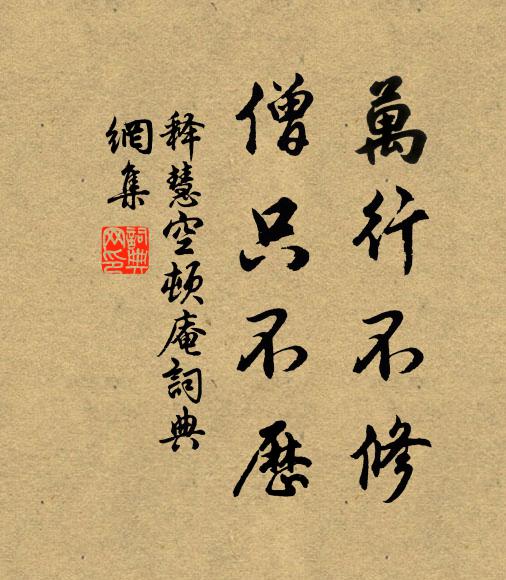 萬行不修
僧只不歷
釋慧空頓庵詞典
網集
詞典
网印